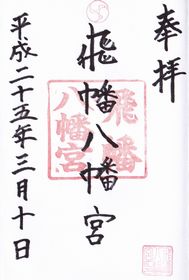 奉拝
飛幡八幡宮
飛幡
八幡宮
平成二十五年三月十日